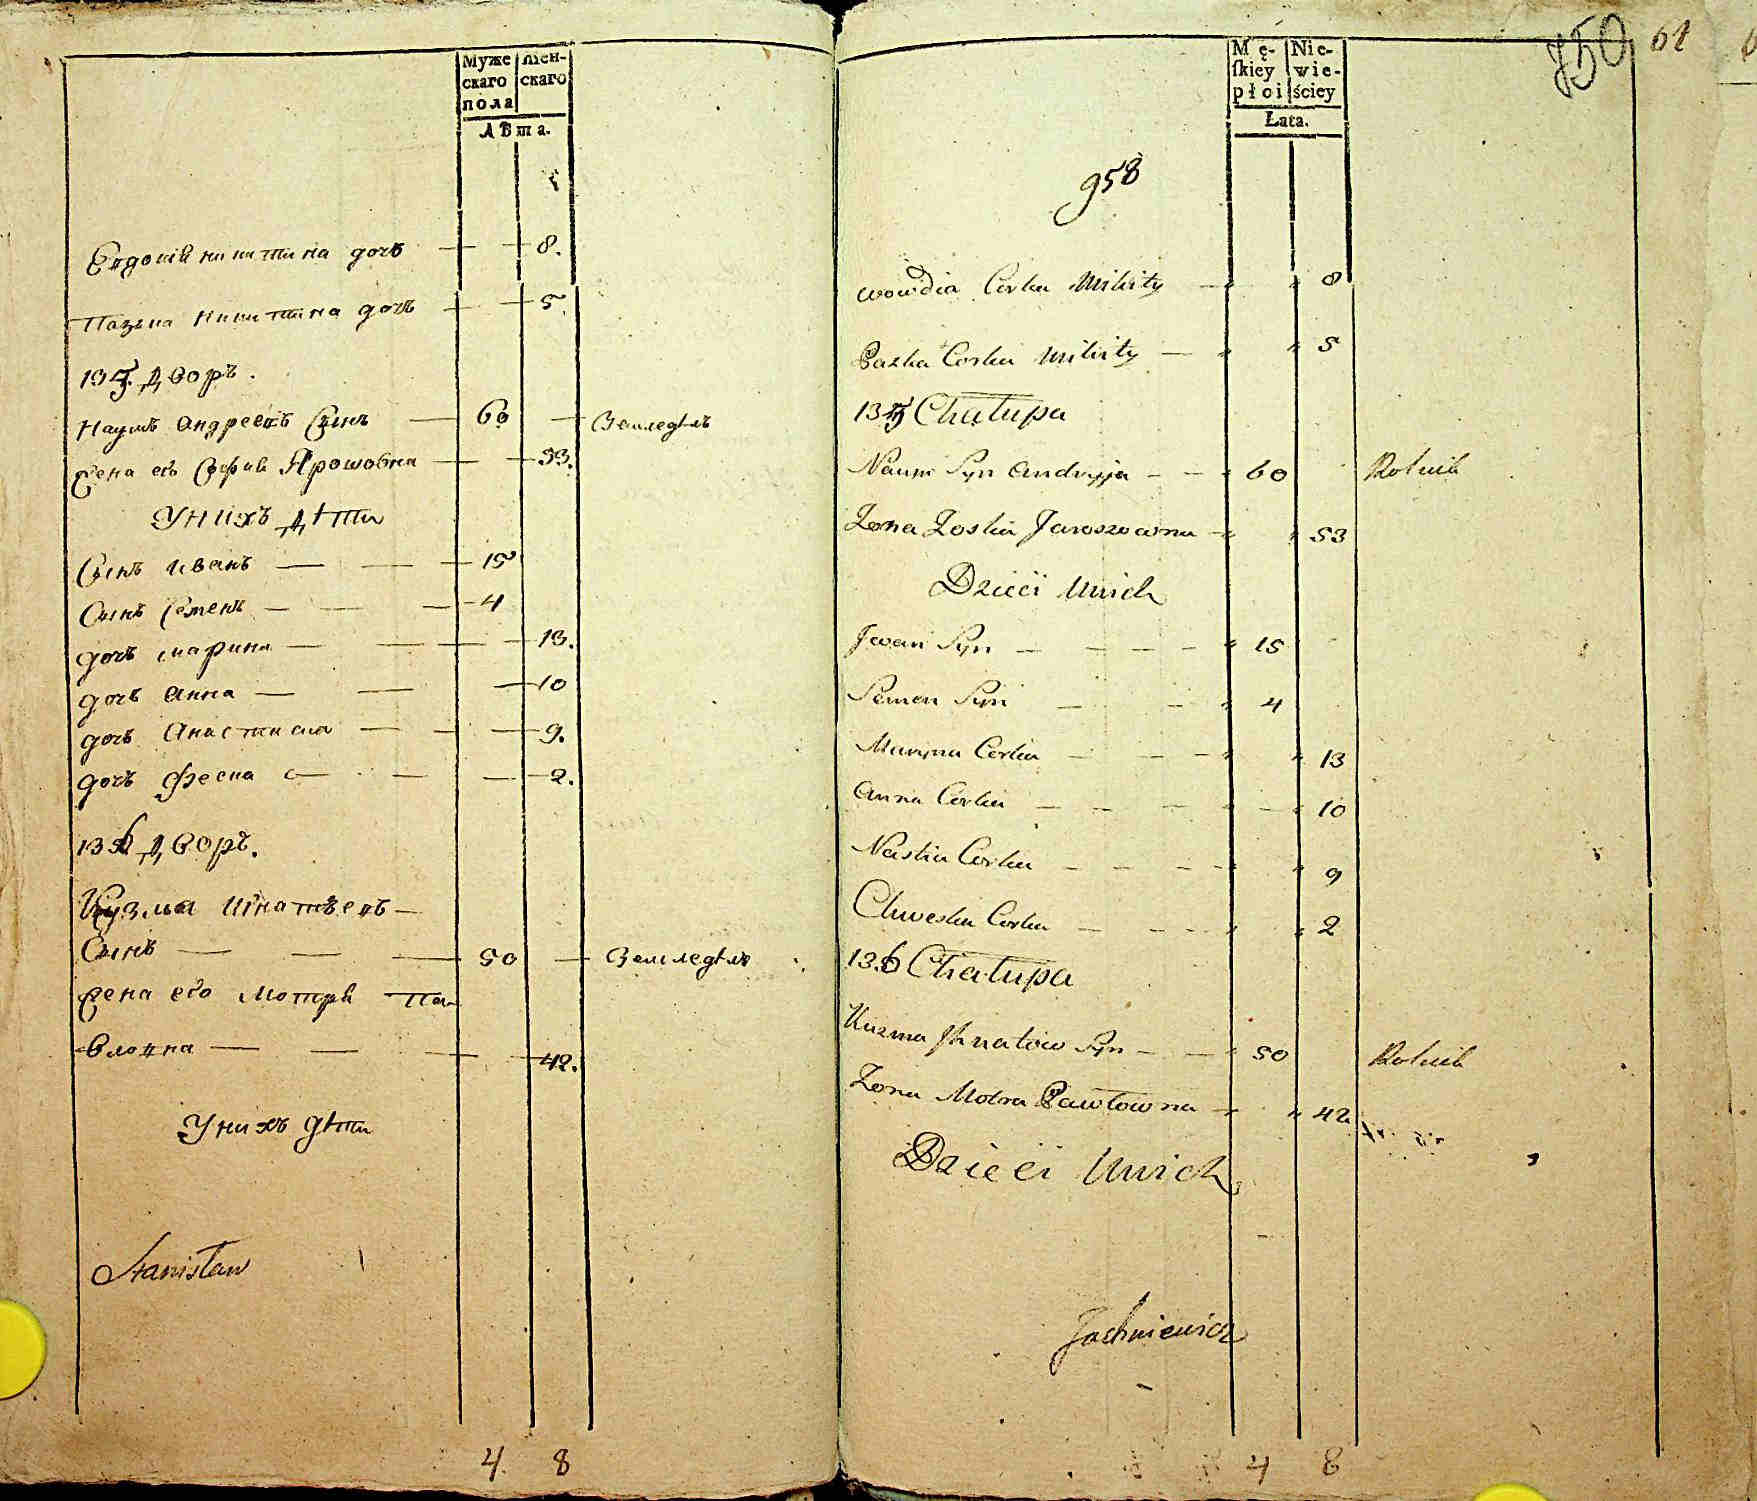 Муже
скаго
пола
жен-
скаго
Лѣта.
Евдокіѣ никитина дочь — — 8.
Пазька Никитина дочь — — 5
135. дворъ.
Наумъ Андреевъ Сынъ — 60 — Земледѣлъ
Жена его Софиѣ Ярошовна — — 53.
У нихъ дѣти
Сынъ иванъ — — — 15
Сынъ Семенъ — — — 4
дочь марина — — — 13.
дочь анна — — — 10
дочь Анастасиа — — — 9.
дочь Феска — — — 2.
136 дворъ.
Кузма Игнатьевъ —
Сынъ — — — 50 — Земледѣлъ
Жена его Мотрѣ Па-
вловна — — — 42.
У нихъ дѣти
Stanisław
4 8
750
61
Mę-
skiey
płci
Nie-
wie-
ściey
Łata.
958
Wowdia Corka Mikity — 8
Pazka Corka Mikity — 5
135 Chałupa
Naum Syn Andryja — — 60 Rolnik
Zona Zoska Jaroszowna — 53
Dzieci Unich
Jwan Syn — — — — 15
Semen Syn — — 4
Maryna Corka — — — 13
Anna Corka — — — — 10
Nastia Corka — — — — 9
Chweska Corka — — — 2
136 Chałupa
Kuzma Jhnatow Syn — — 50 Rolnik
Zona Motra Pawłowna — 42
Dzieci Unich
Jachniewicz
4 8